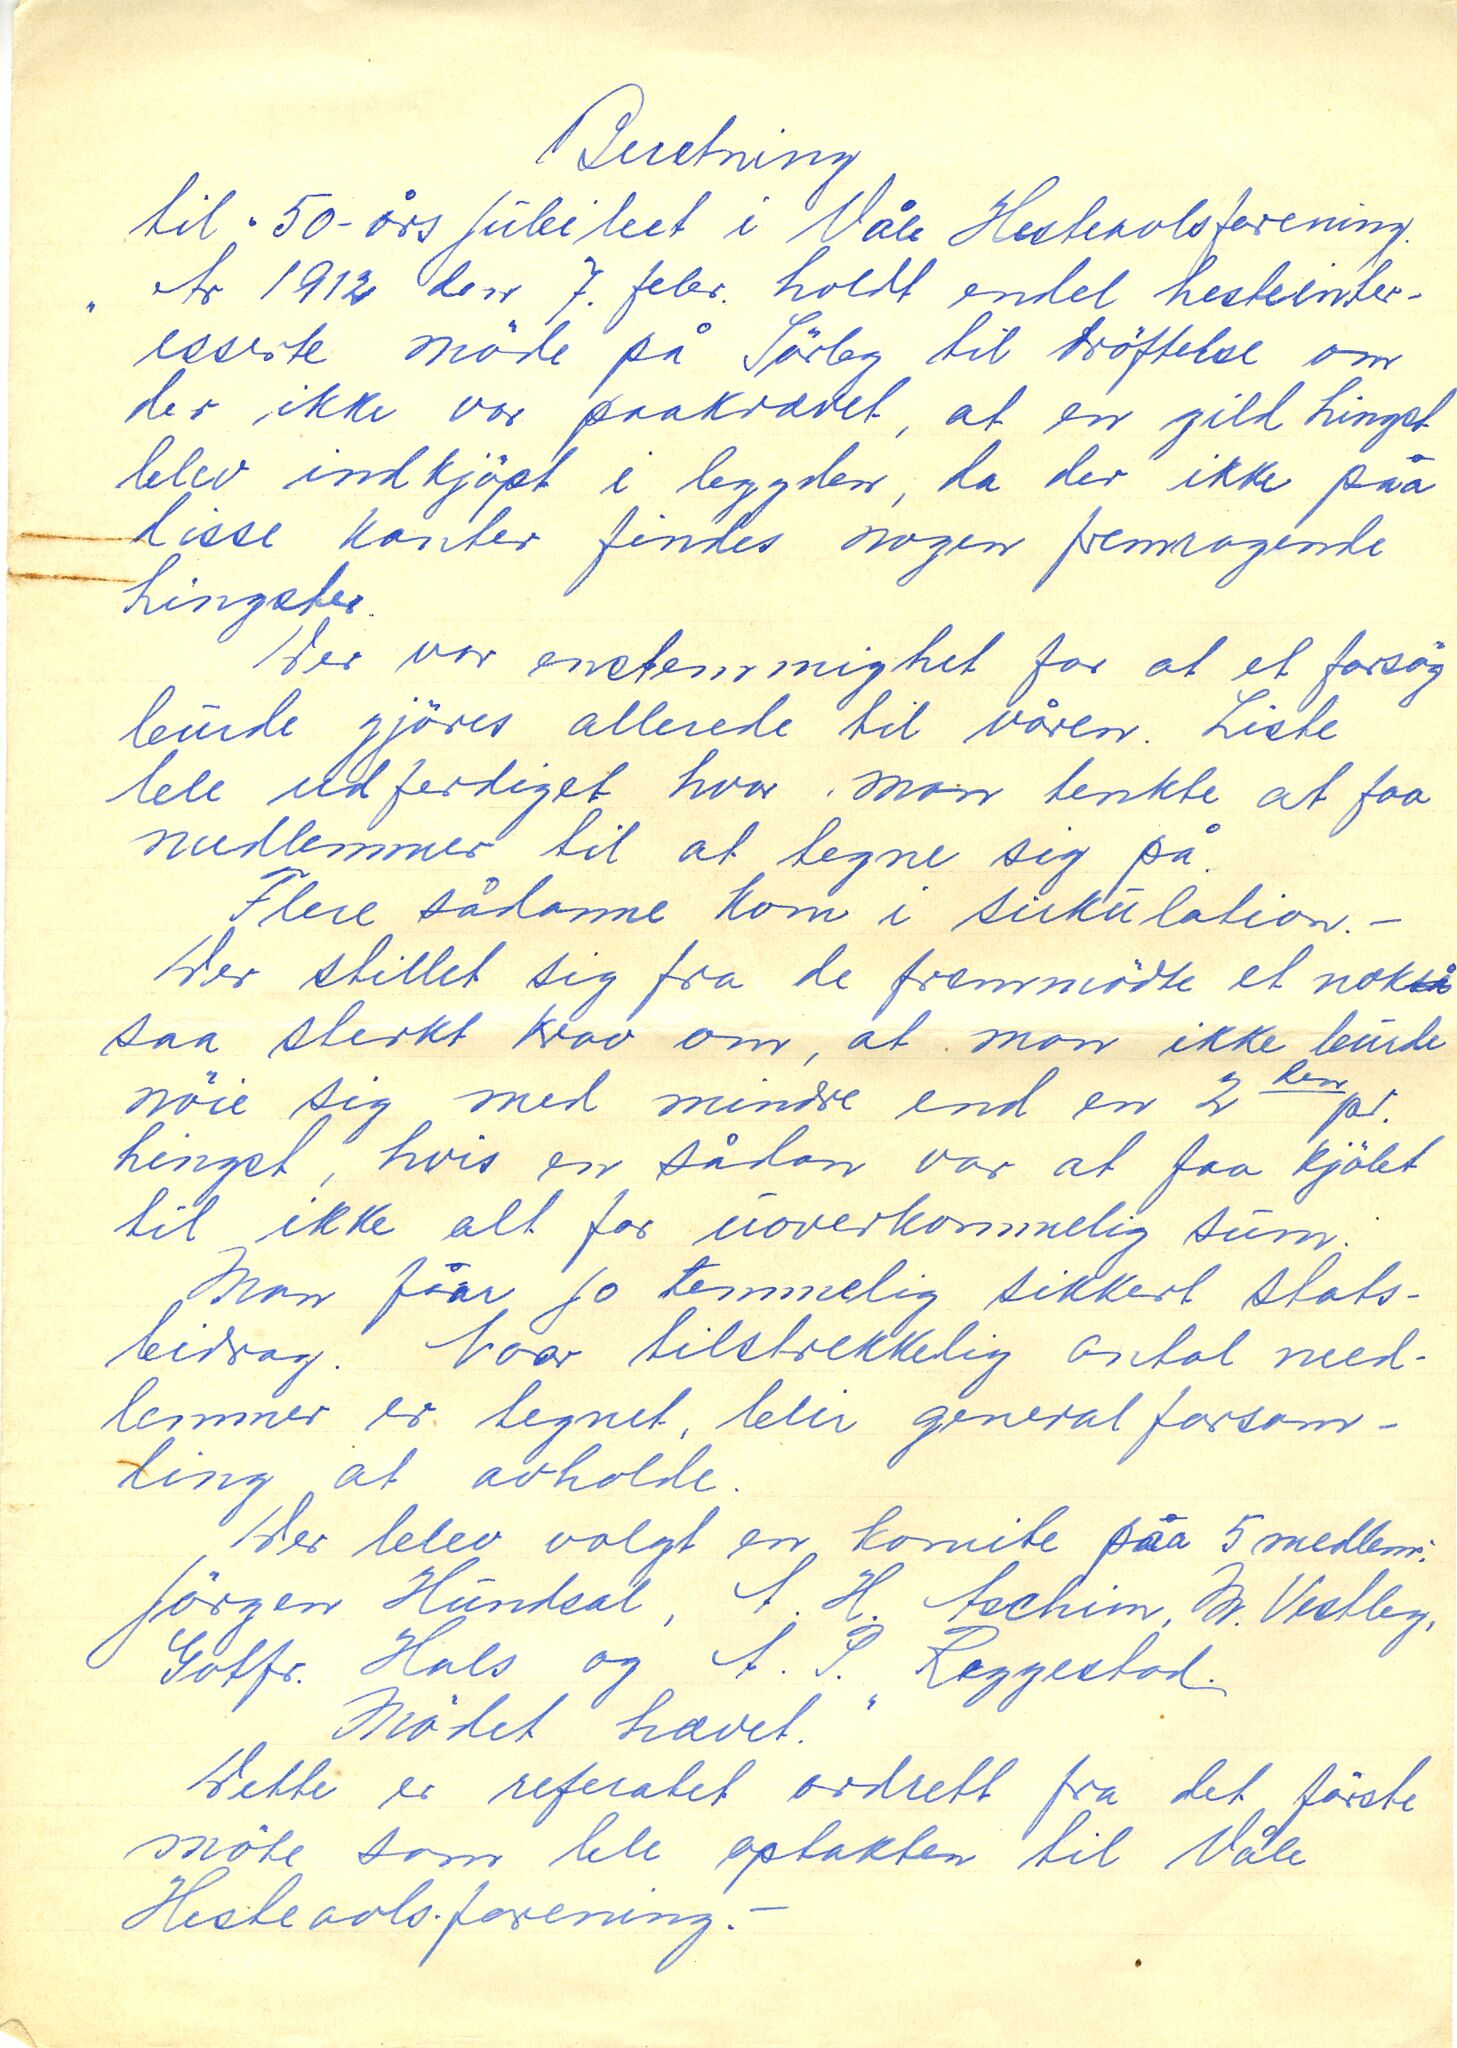 Beretning
til 50-års jubileet i Våle Hesteavlsforening.
„ År 1912 den 7. febr. holdt endel hesteinter-
esserte möde på Sörby til dröftelse om
der ikke var paakrævet, at en gild hingst
blev indkjöpt i bygden, da der ikke påa
disse kanter findes nogen fremragende
hingster.
Der var enstemmighet for at et forsög
burde gjöres allerede til våren. Liste
ble udferdiget hvor man tenkte at faa
medlemmer til at tegne sig på.
Flere sådanne kom i sirkulation.-
Der stillet sig fra de fremmödte et nok
saa sterkt krav om, at man ikke burde
nöie sig med mindre end en 2den pr.
hingst, hvis en sådan var at faa kjöbt
til ikke alt for uoverkommelig sum.
Man fåar jo temmelig sikkert stats-
bidrag. Naar tilstrekkelig antal med-
lemmer er tegnet, blir generalforsam-
ling at avholde.
Der blev valgt en komite påa 5 medlem:
Jörgen Hundsal, A. H. Aschim, M. Vestby,
Gotfr. Hals og A. P. Reggestad.
Mödet hævet."
Dette er referatet ordrett fra det förste
möte som ble optakten til Våle
Hesteavls.forening.-